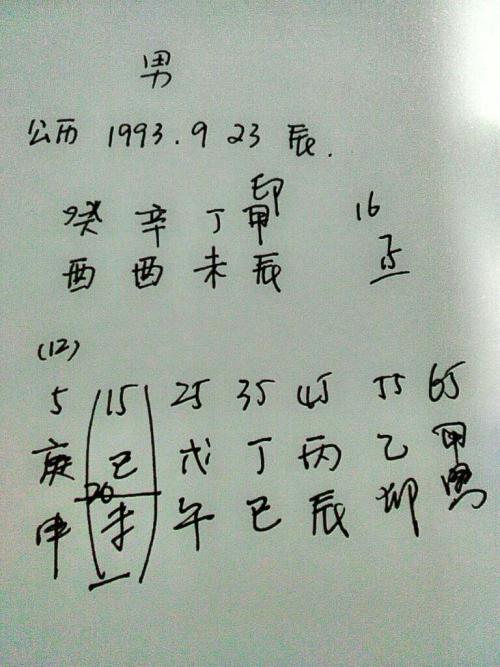 男
公历 1993.9 23 辰.
印
癸 辛 丁 甲 16
酉 酉 未 辰
(12)
5 15 25 35 45 55 65
庚 己 戊 丁 丙 乙 甲
20
申 未 午 巳 辰 卯